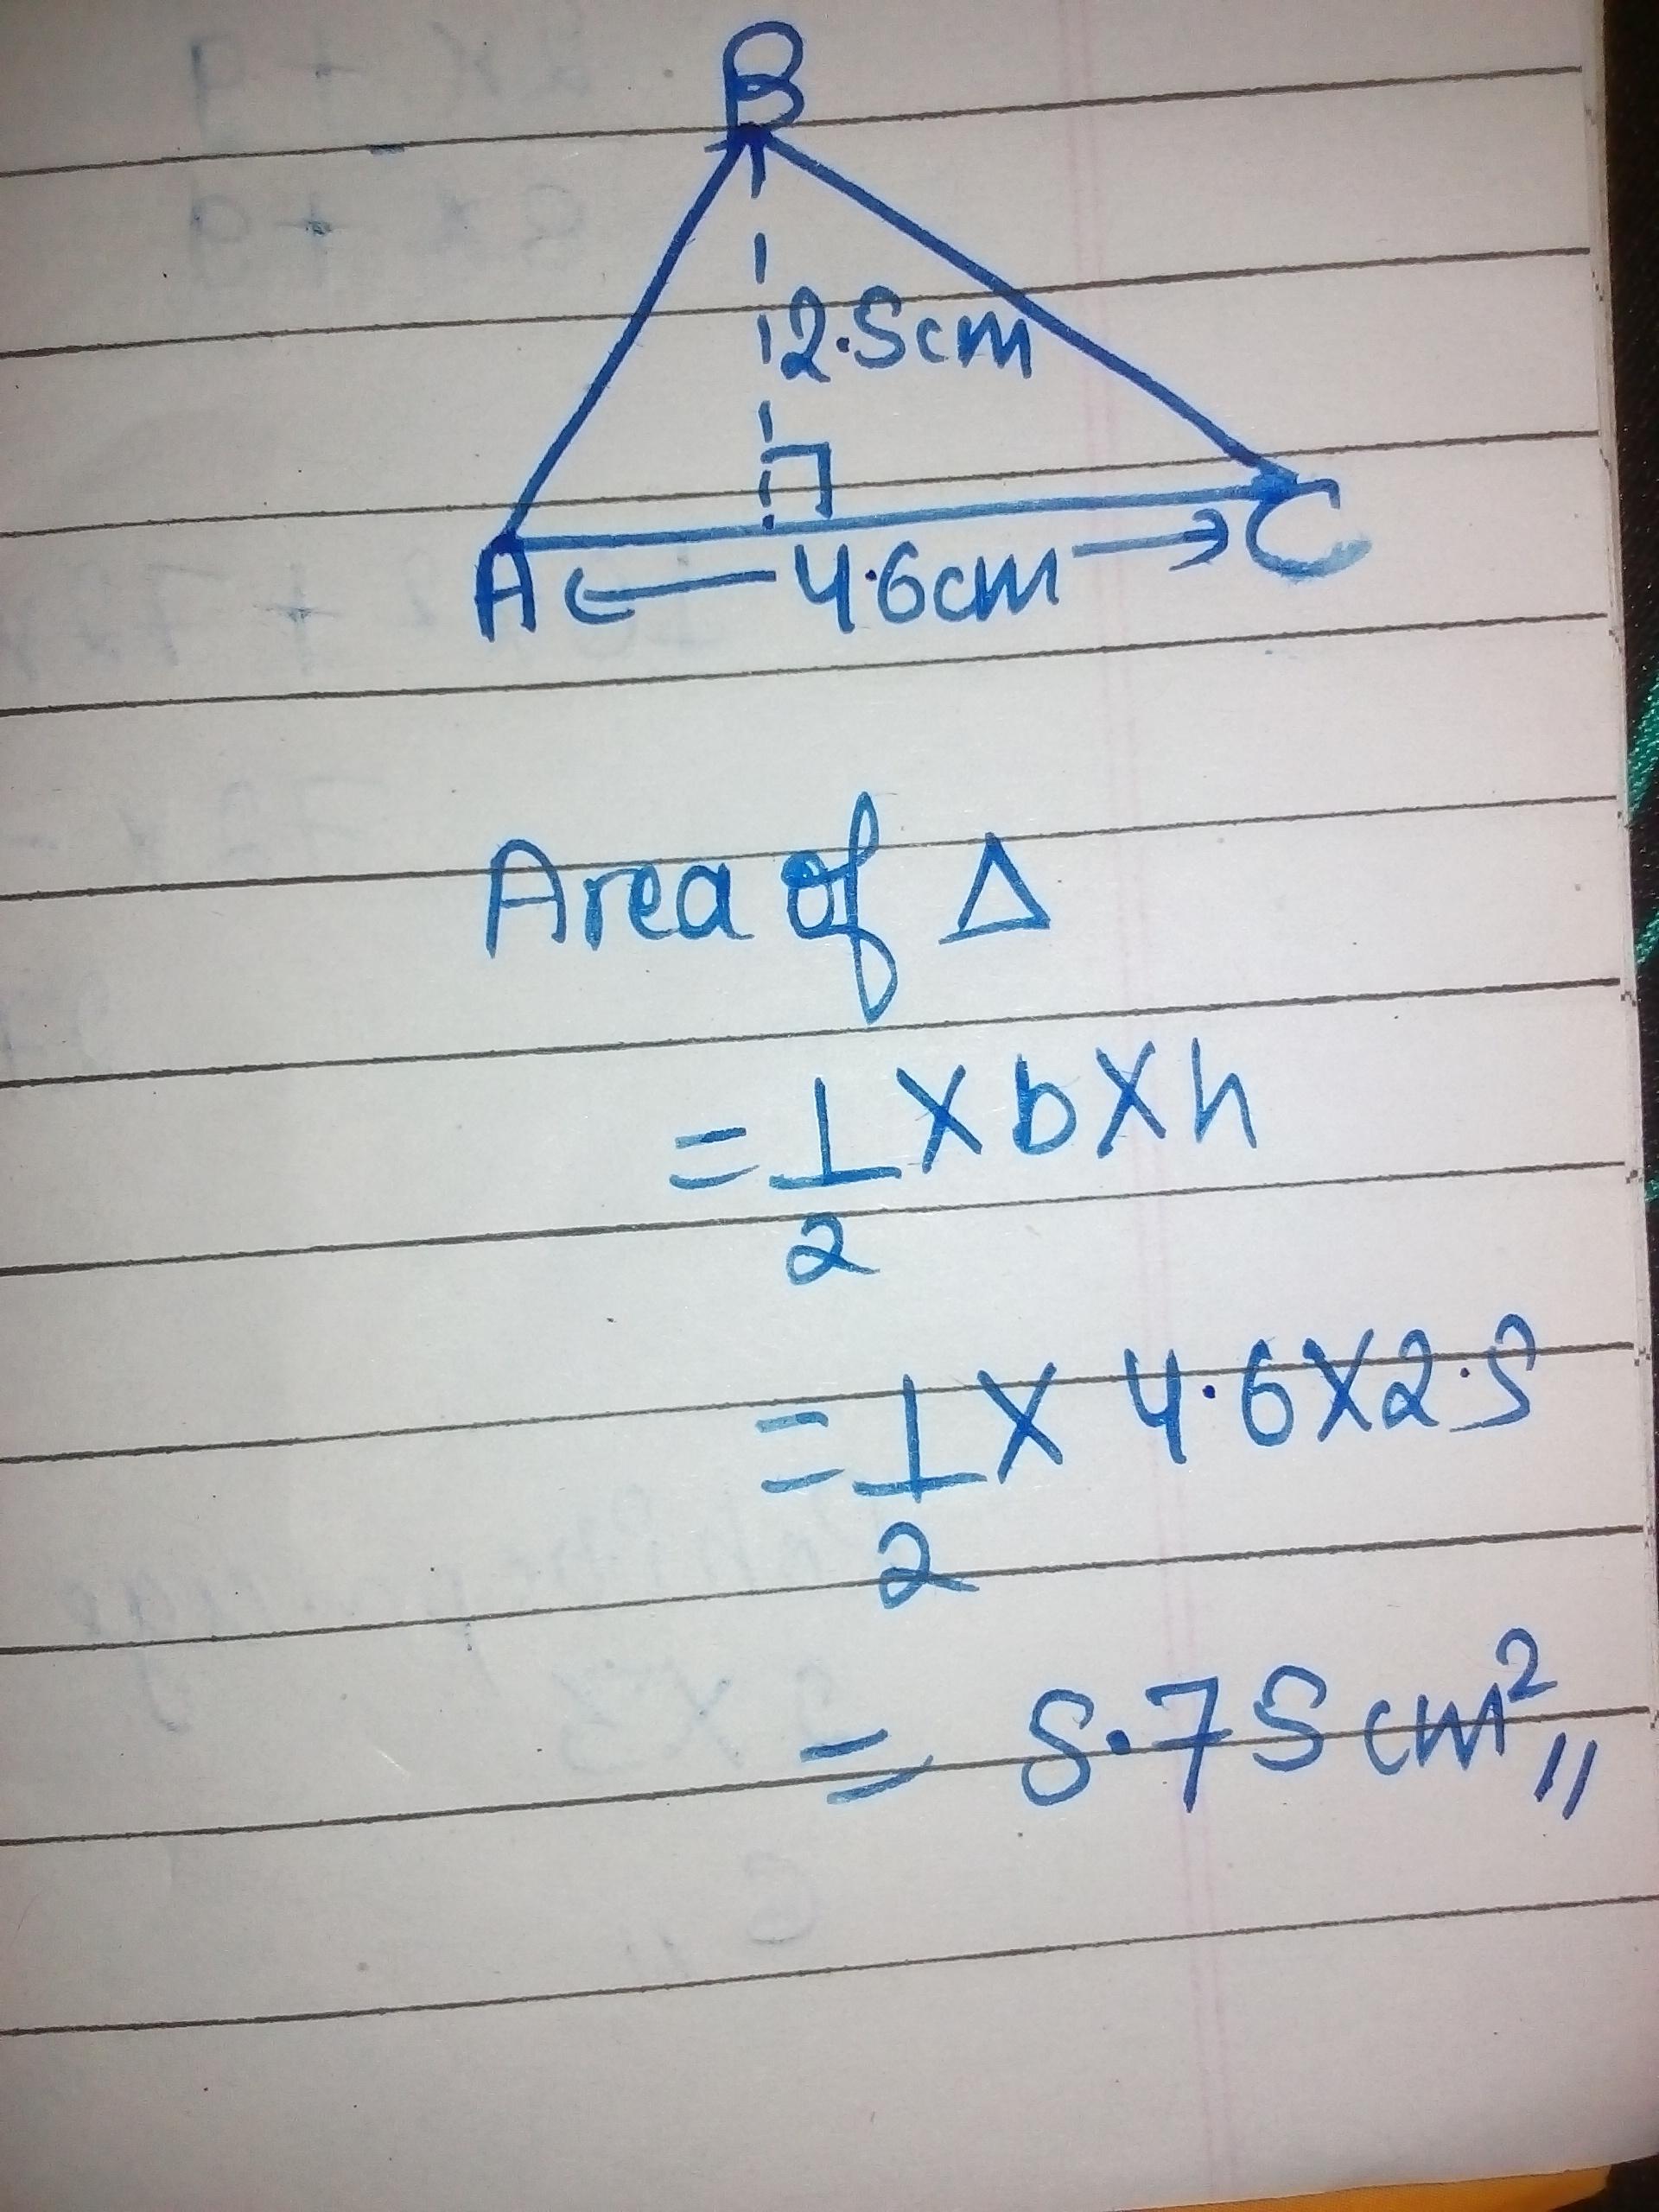 B
2.5cm
A ← 4.6cm → C
Area of Δ
= 1/2 × b × h
= 1/2 × 4.6 × 2.5
= 5.75 cm² //